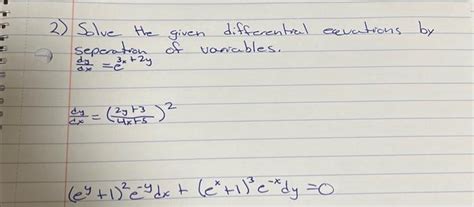 2) Solve the given differential eqvuations by
seperation of variables.
dy/dx = e^{3x+2y}
dy/dx = ((2y+3)/(4x+5))^2
(e^y+1)^2 e^{-y} dx + (e^x+1)^3 e^{-x} dy = 0